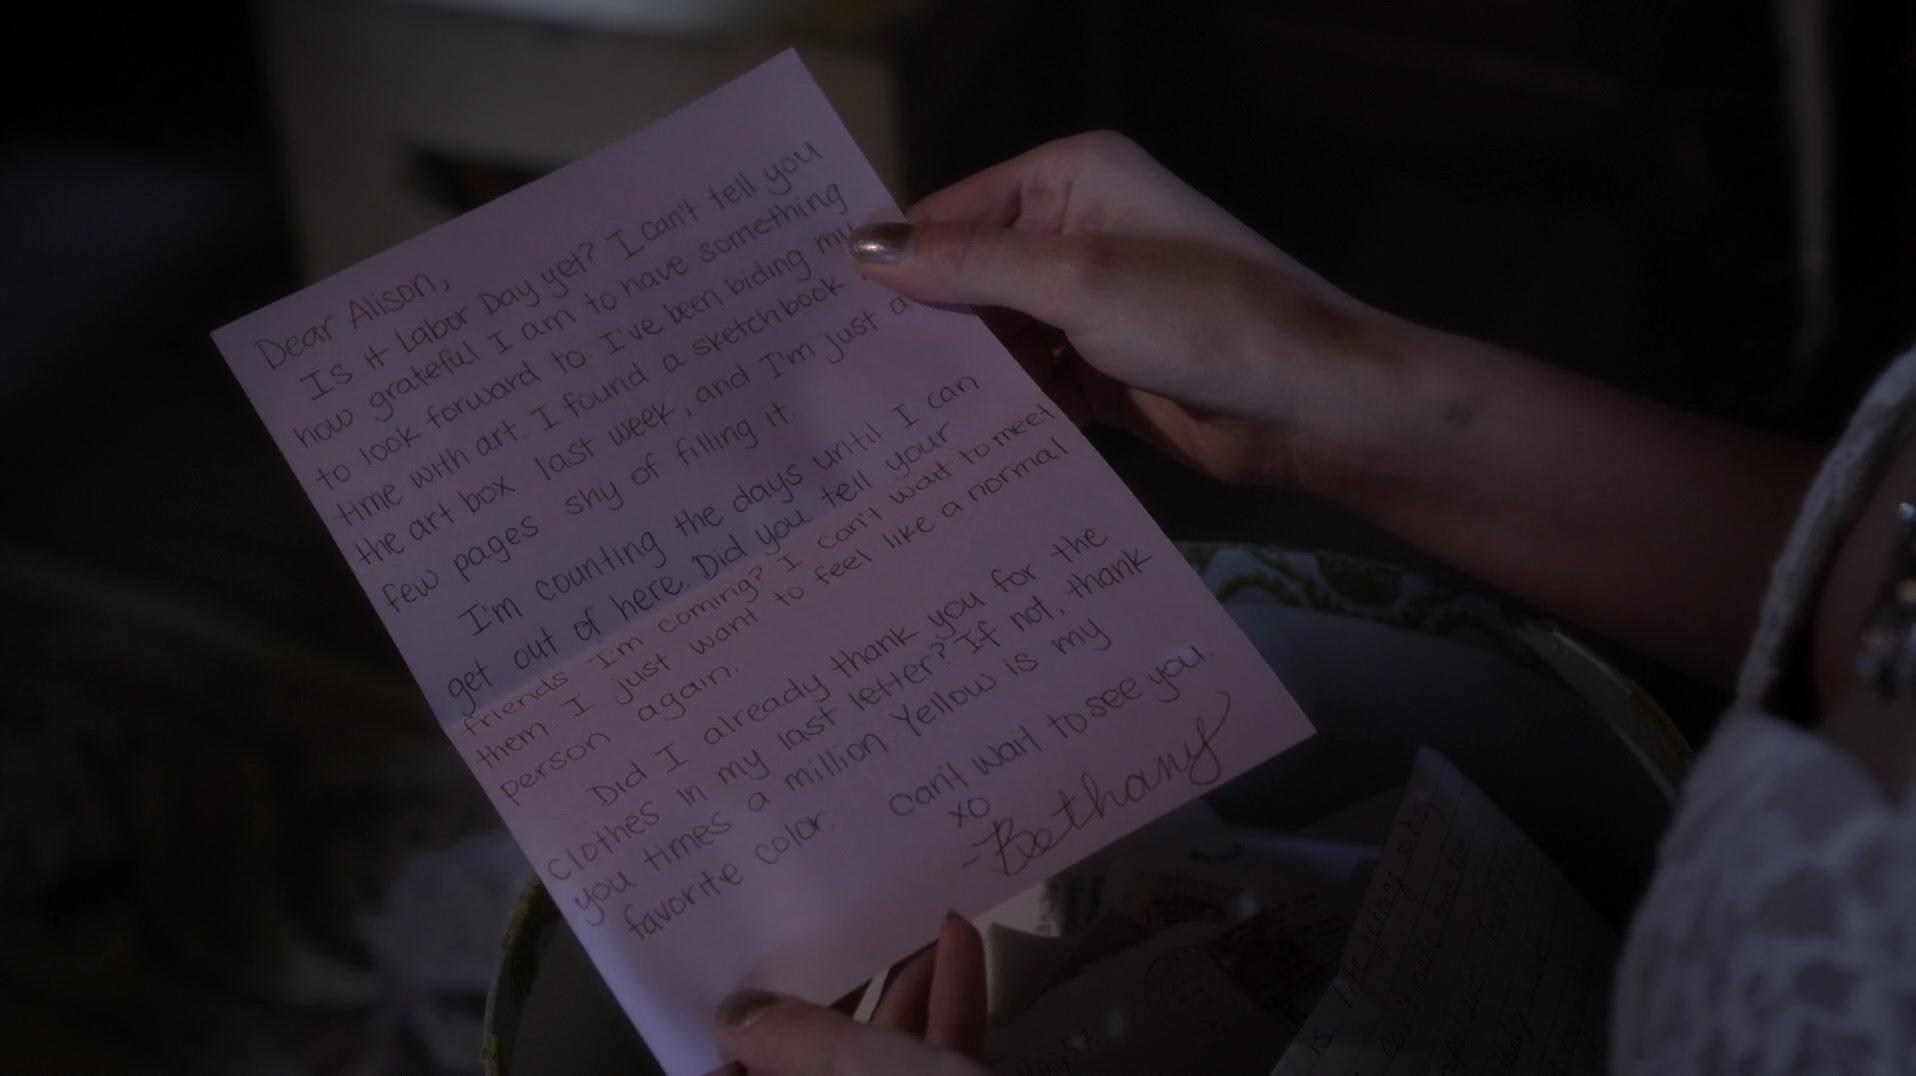 Dear Alison,
Is it Labor Day yet? I can't tell you
how grateful I am to have something
to look forward to. I've been biding my
time with art. I found a sketchbook
the art box last week, and I'm just a
few pages shy of filling it.
I'm counting the days until I can
get out of here. Did you tell your
friends I'm coming? I can't wait to meet
them. I just want to feel like a normal
person again.
Did I already thank you for the
clothes in my last letter? If not, thank
you times a million. Yellow is my
favorite color. Can't wait to see you.
xo
-Bethany
is life getting